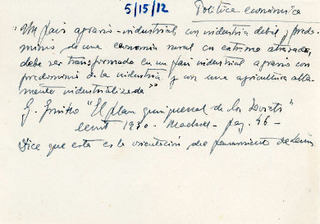 5/15/12
Política económica
"Un país agrario-industrial, con industria débil y predo-
minio de una economía rural en extremo atrasada,
debe ser transformado en un país industrial agrario con
predominio de la industria y con una agricultura alta-
mente industrializada"
G. Grinko "El plan quinquenal de los Soviets"
Cenit 1930. Madrid - pag. 46 -
Dice que esta es la orientación del pensamiento de Lenin